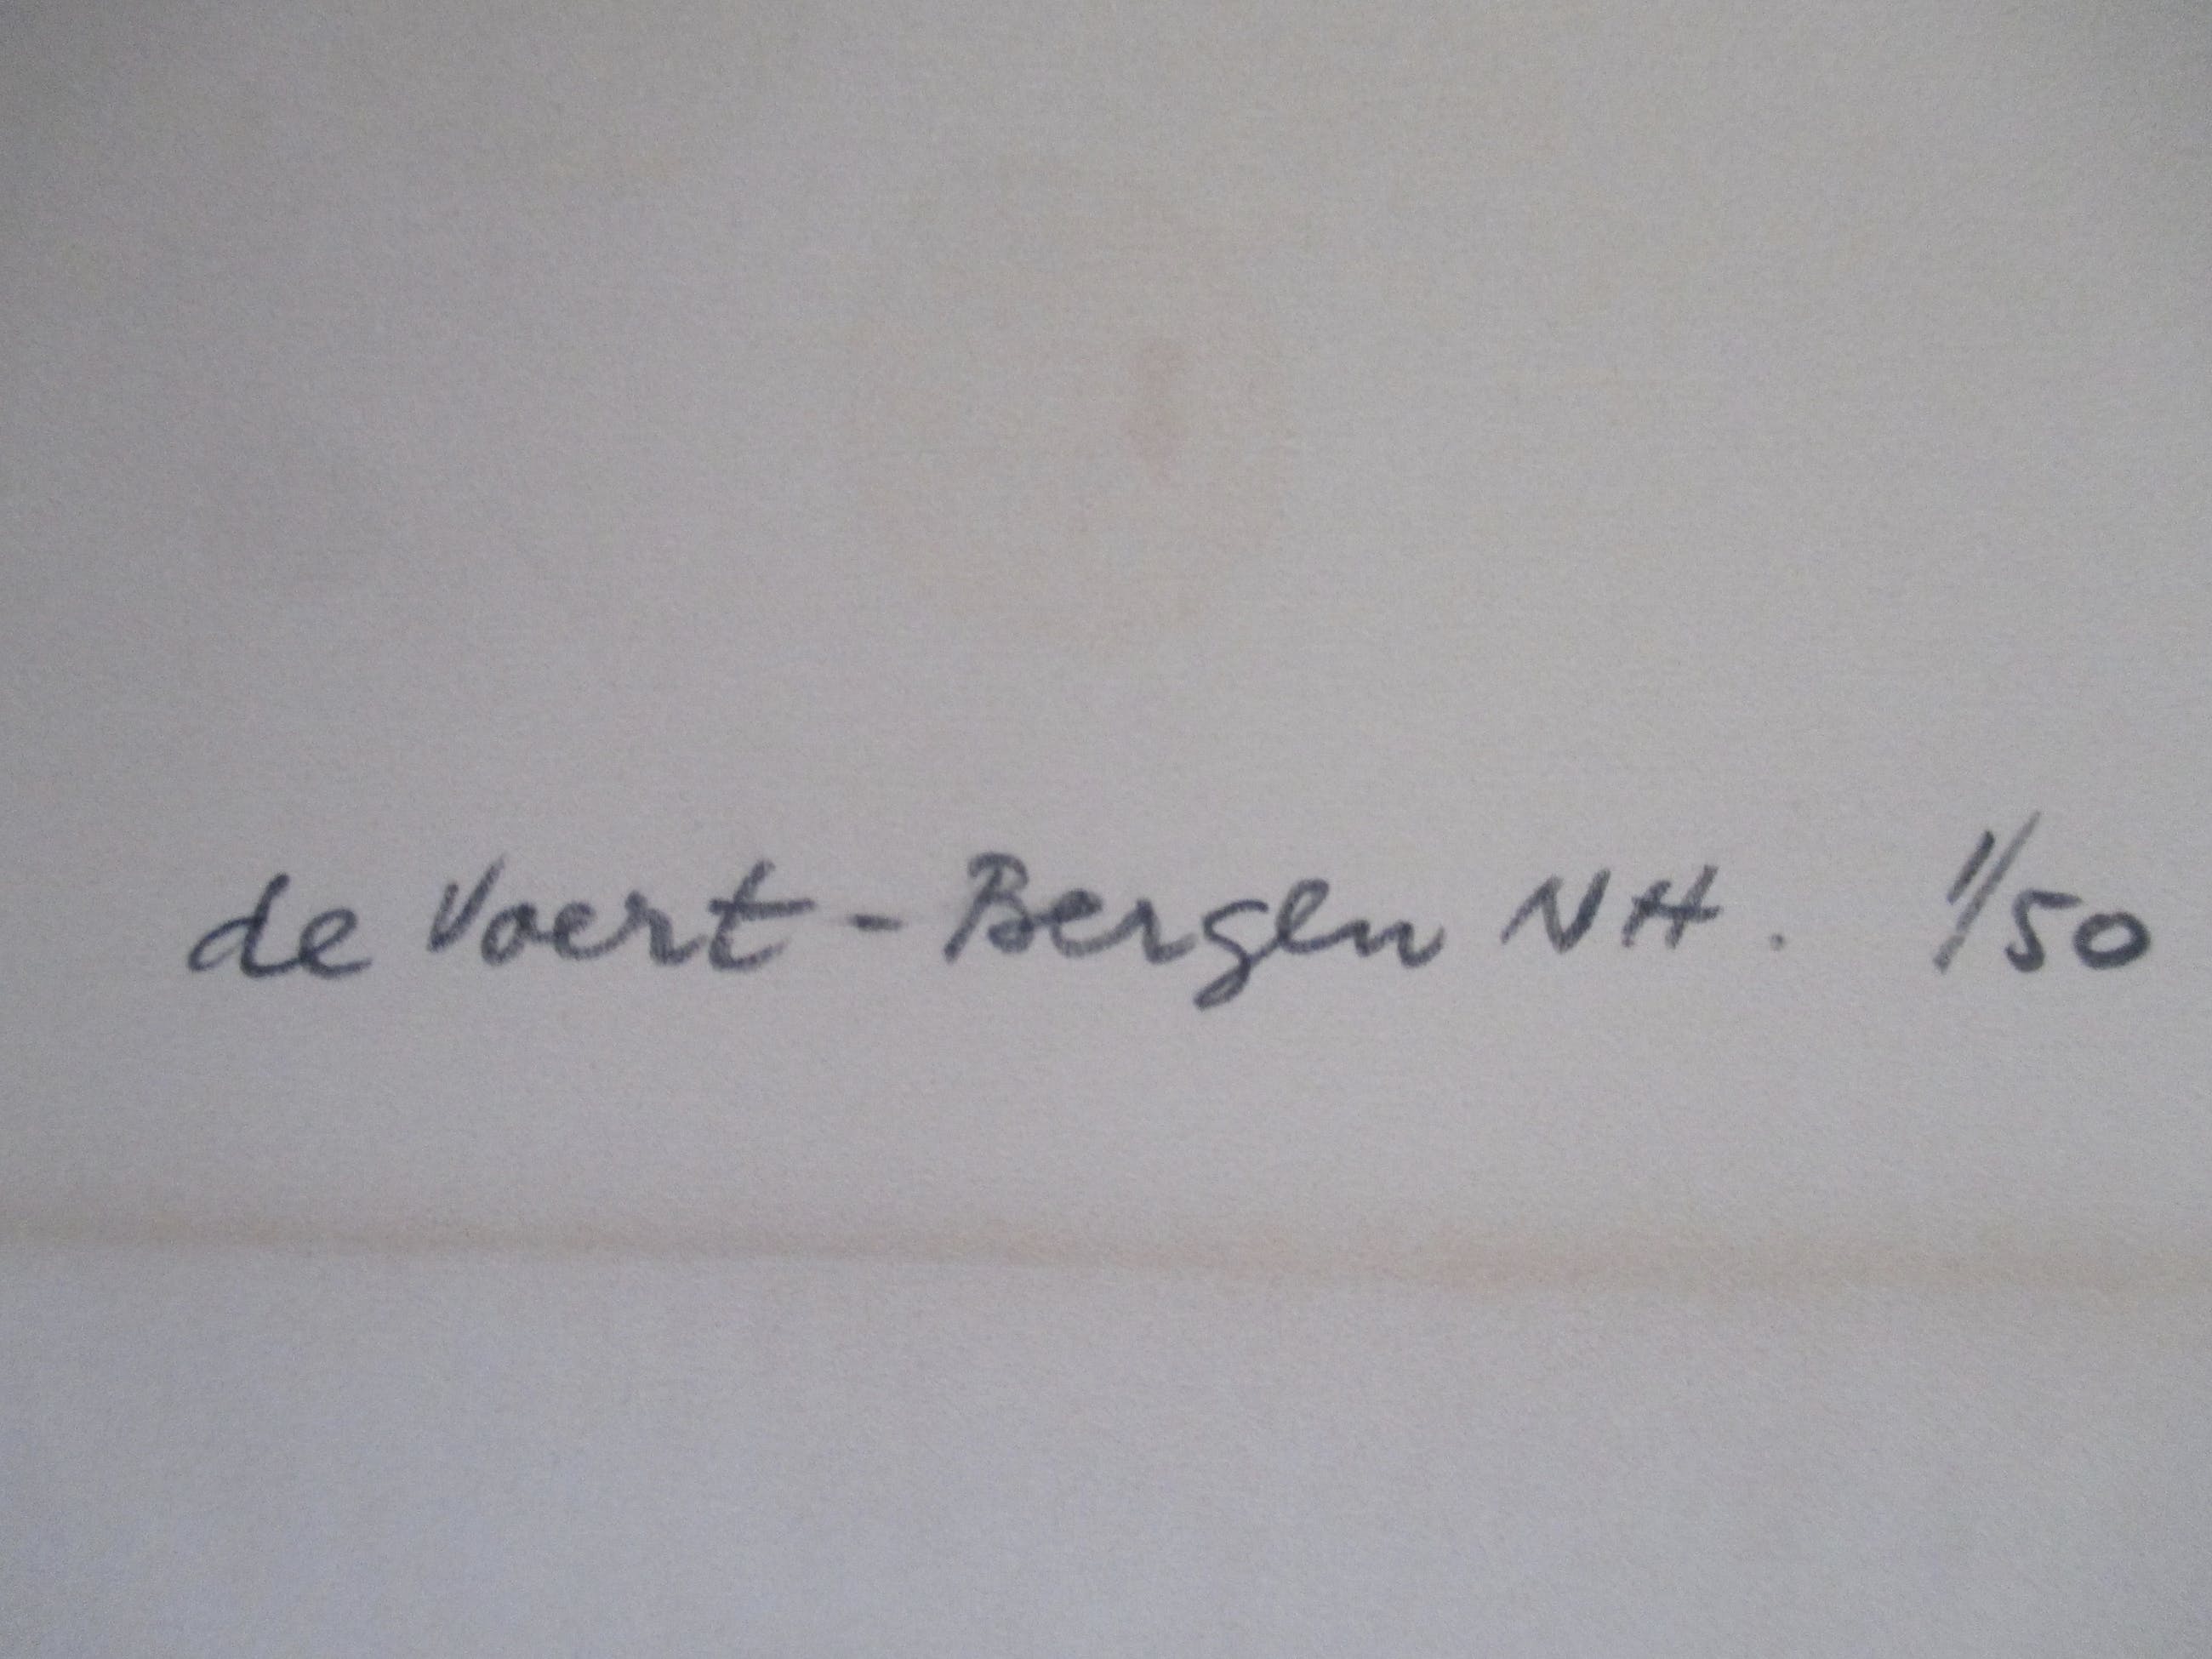 de Voert - Bergen NH. 1/50